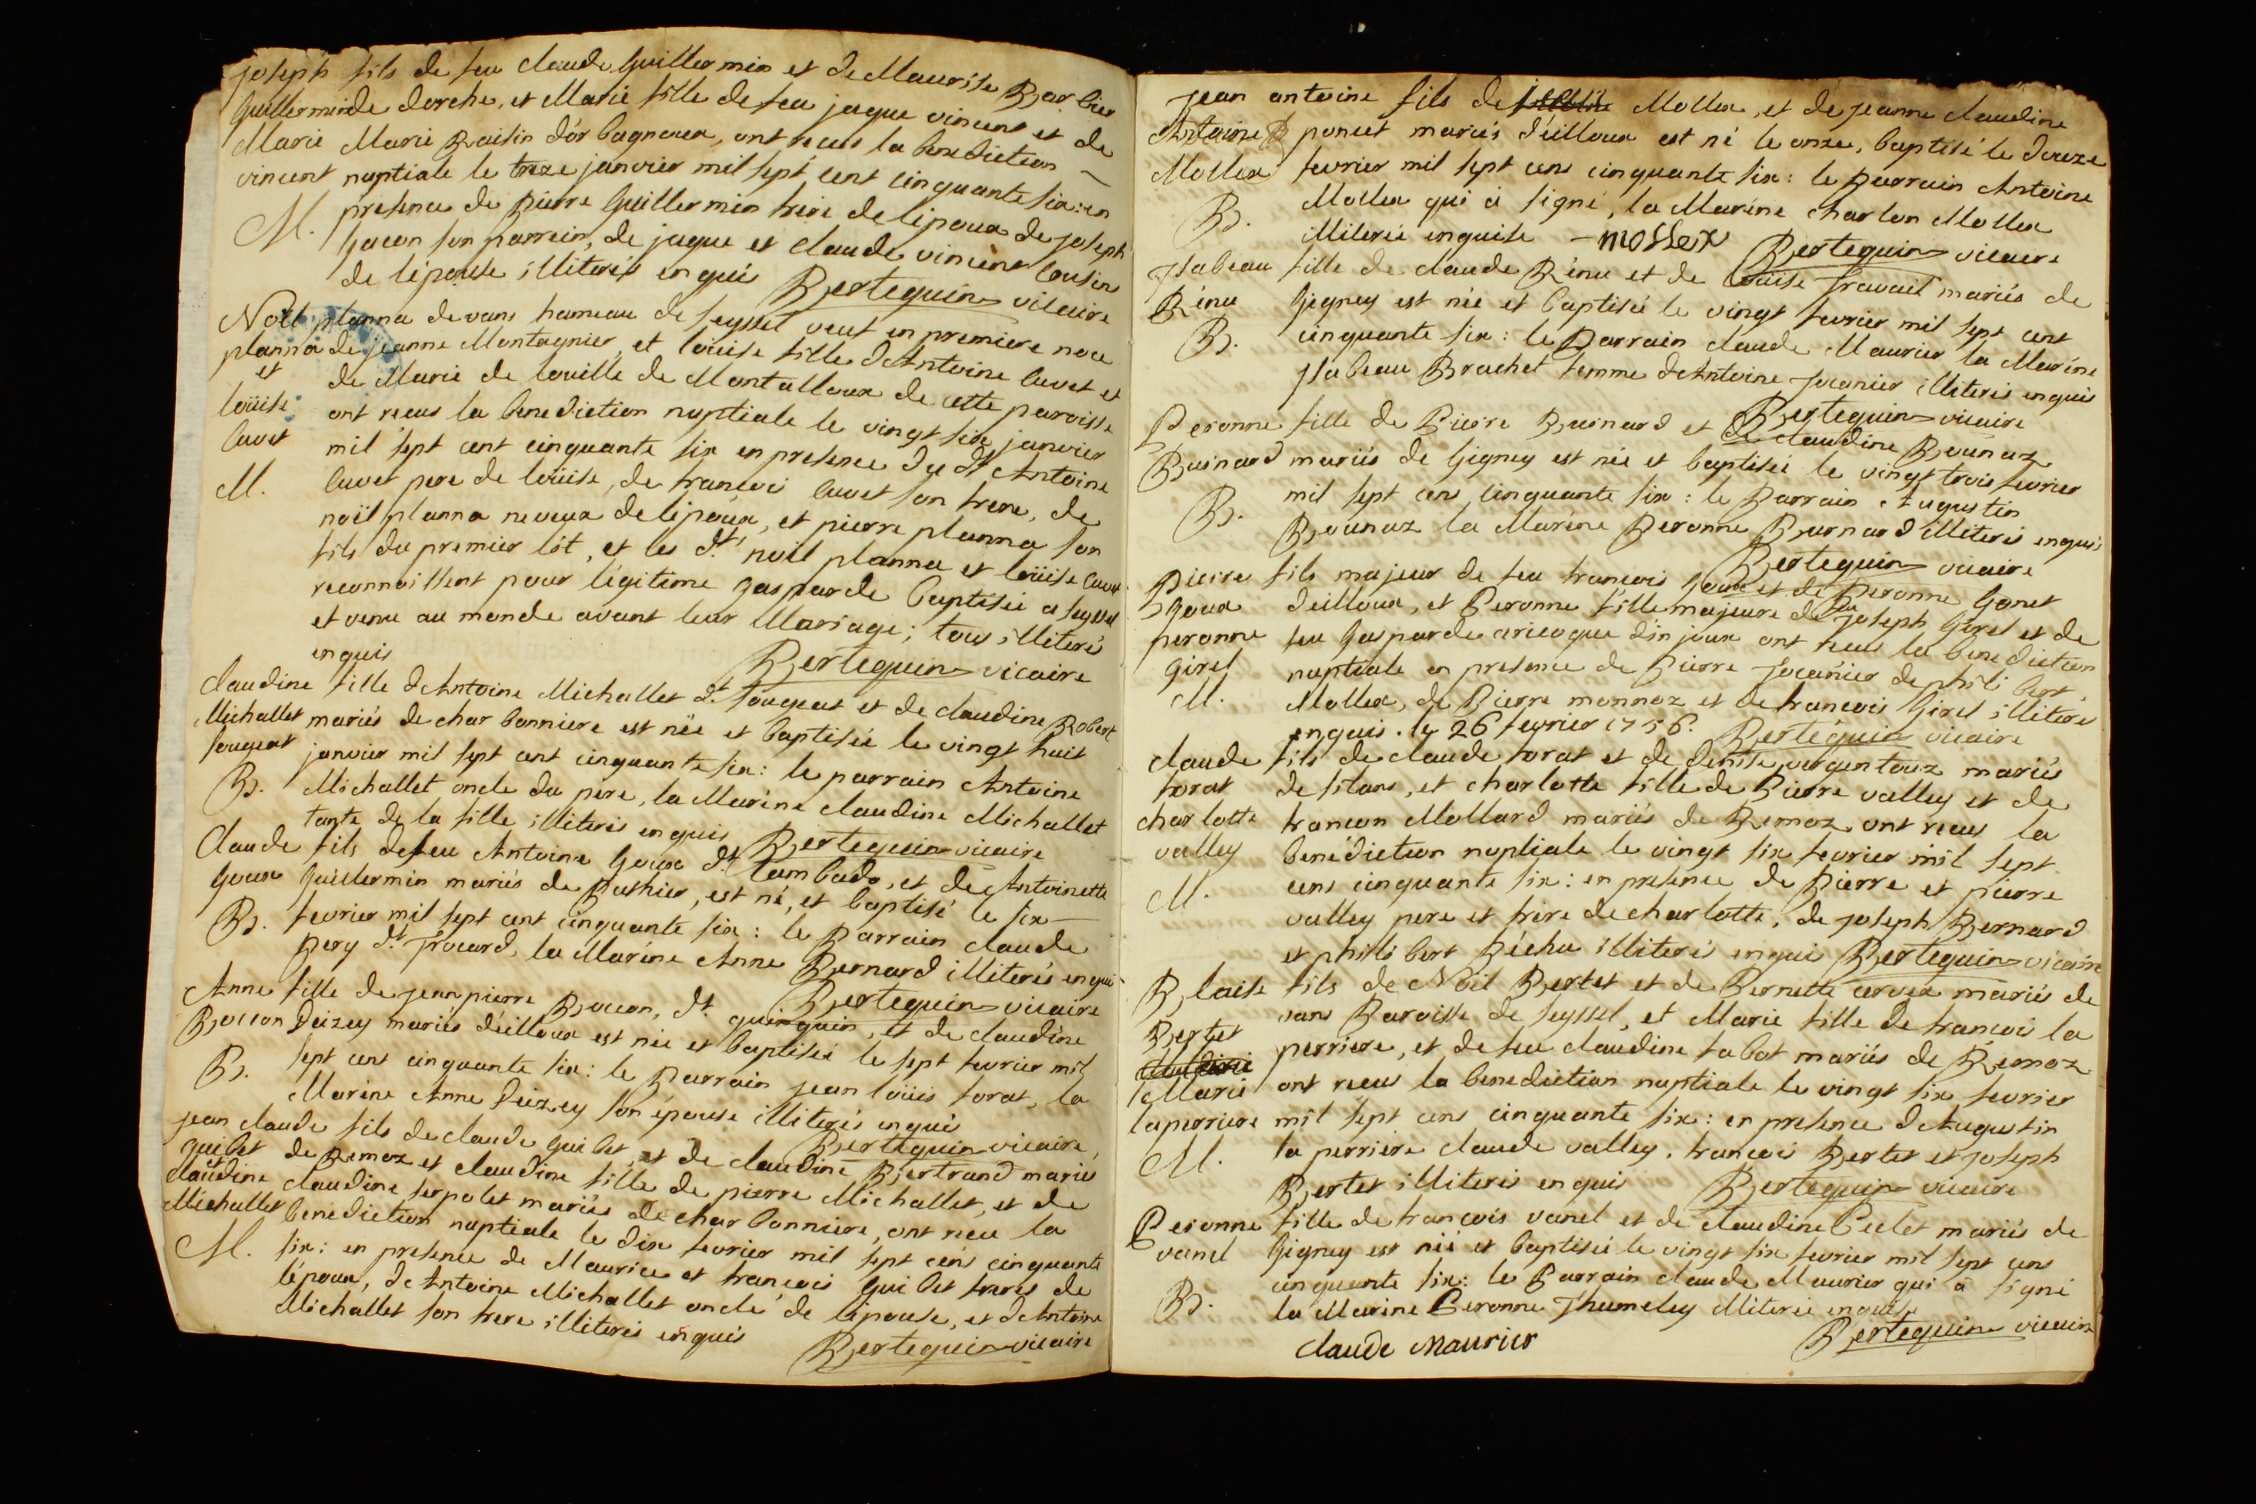 joseph fils de feu claude Guillermin et de Maurise Barbier
Guillermin de dorche, et Marie fille de feu jaque vincent et de
Marie Marie Raisin d'or bagnoux, ont reçus la benediction
vincent nuptiale le treze janvier mil sept cent cinquante six: en
M. presence de Pierre Guillermin frere de l'epoux de joseph
son parrein, de jaque et claude vincent cousin
de l'épouse illiterés enquis Bertequin vicaire
Noël planna de vans hameau de seyssel veuf en premiere noce
planna de jeanne Montagnier, et loüise fille d'Antoine cuvet et
et de Marie de louille de Montalloux de cette paroisse
loüise ont reçus la benediction nuptiale le vingt six janvier
cuvet mil sept cent cinquante six en presence du dt Antoine
M. cuvet pere de loüise, de francoi cuvet son frere, de
noïl planna neveux de l'époux, et pierre planna son
fils du premier lót, et les dts noïl planna et loüise cuvet
reconnoissent pour légitime gasparde baptisée a seyssel
et venu au monde avant leur Mariage; tous illiterés
enquis Bertequin vicaire
Claudine fille d'Antoine Michallet dt fougeat et de claudine Robert
Michallet mariés de charbonniere est née et baptisée le vingt huit
fougeat janvier mil sept cent cinquante six: le parrain Antoine
B. Michallet oncle du pere, la Marine claudine Michallet
tante de la fille illiterés enquis Bertequin vicaire
Claude fils de feu Antoine goux dt tambado, et de Antoinette
goux Guillermin mariés de Puthier, est né, et baptisé le six
B. fevrier mil sept cent cinquante six: le Parrain claude
Pery dt frocard, la Marine Anne Bernard illiterés enquis
Bertequin vicaire
Anne fille de jean pierre Boccon, dt quinquin, et de claudine
Boccon Deizey mariés d'éilloux est née et baptisée le sept fevrier mil
B. sept cens cinquante six: le Parrain jean loüis forat, la
Marine Anne Deizey son épouse illiterés enquis
Bertequin vicaire
jean claude fils de claude quibet, et de claudine Bertrand mariés
quibet de Remoz et claudine fille de pierre Michallet, et de
et
claudine claudine serpolet mariés de charbonniere, ont reçu la
Michallet benediction nuptiale le dix fevrier mil sept cens cinquante
M. six: en presence de Maurice et francois quibet freres de
l'époux, de Antoine Michallet oncle de l'épouse, et d'Antoine
Michallet son frere illiterés enquis Bertequin vicaire
jean antoine fils de Mollex, et de jeanne claudine
Antoine poncet mariés d'éilloux est né le onze, baptisé le douze
Mollex fevrier mil sept cens cinquante six: le Parrain Antoine
B. Mollex qui á signé, la Marine charlon Mollex
illiterée enquise - mollex Bertequin vicaire
jsabeau fille de claude Rénu et de loüise fravail mariés de
Rénu Gigney est née et baptisée le vingt fevrier mil sept cent
B. cinquante six: le Parrain claude Maurier la Marine
jsabeau Brachet femme d'Antoine jocanier illiterés enquis
Bertequin vicaire
Peronne fille de Pierre Burnard et de claudine Bounaz
Burnard mariés de Gigney est née et baptisée le vingt trois fevrier
B. mil sept cens cinquante six: le Parrain Augustin
Bounaz la Marine Peronne Burnard illiterés enquis
Bertequin vicaire
Pierre fils majeur de feu francois goux et de Peronne Gonet
goux d'eilloux, et Peronne fille majeure de feu joseph Girel et de
peronne feu Gasparde d'injoux ont reçus la benediction
girel nuptiale en presence de Pierre jocanier de philibert
M. Mollex, de Pierre monnoz et de francois Girel illiterés
enquis. le 26 fevrier 1756. Bertequin vicaire
claude fils de claude forat et de denise mariés
forat de silans, et charlotte fille de Pierre valley et de
charlotte francon Mollard mariés de Remoz, ont reçus la
valley benediction nuptiale le vingt six fevrier mil sept
M. cens cinquante six: en presence de Pierre et pierre
valley pere et frére de charlotte, de joseph Bernard
et philibert Décha illiterés enqui Bertequin vicaire
Blaise fils de Noïl Bertet et de Bernette mariés de
vans Paroisse de seyssel, et Marie fille de francois la
Bertet perriere, et de feu claudine fabot mariés de Remoz
Marie ont reçus la benediction nuptiale le vingt six fevrier
laperriere mil sept cens cinquante six: en presence d'Augustin
M. la perriere claude valley, francois Bertet et joseph
Bertet illiterés enquis Bertequin vicaire
Peronne fille de francois vanel et de claudine Pelet mariés de
vanel Gigney est née et baptisée le vingt six fevrier mil sept cens
cinquante six: le Parrain claude Maurier qui á signé
B. la Marine Peronne Thumeley illiterée enquise
claude maurier Bertequin vicaire